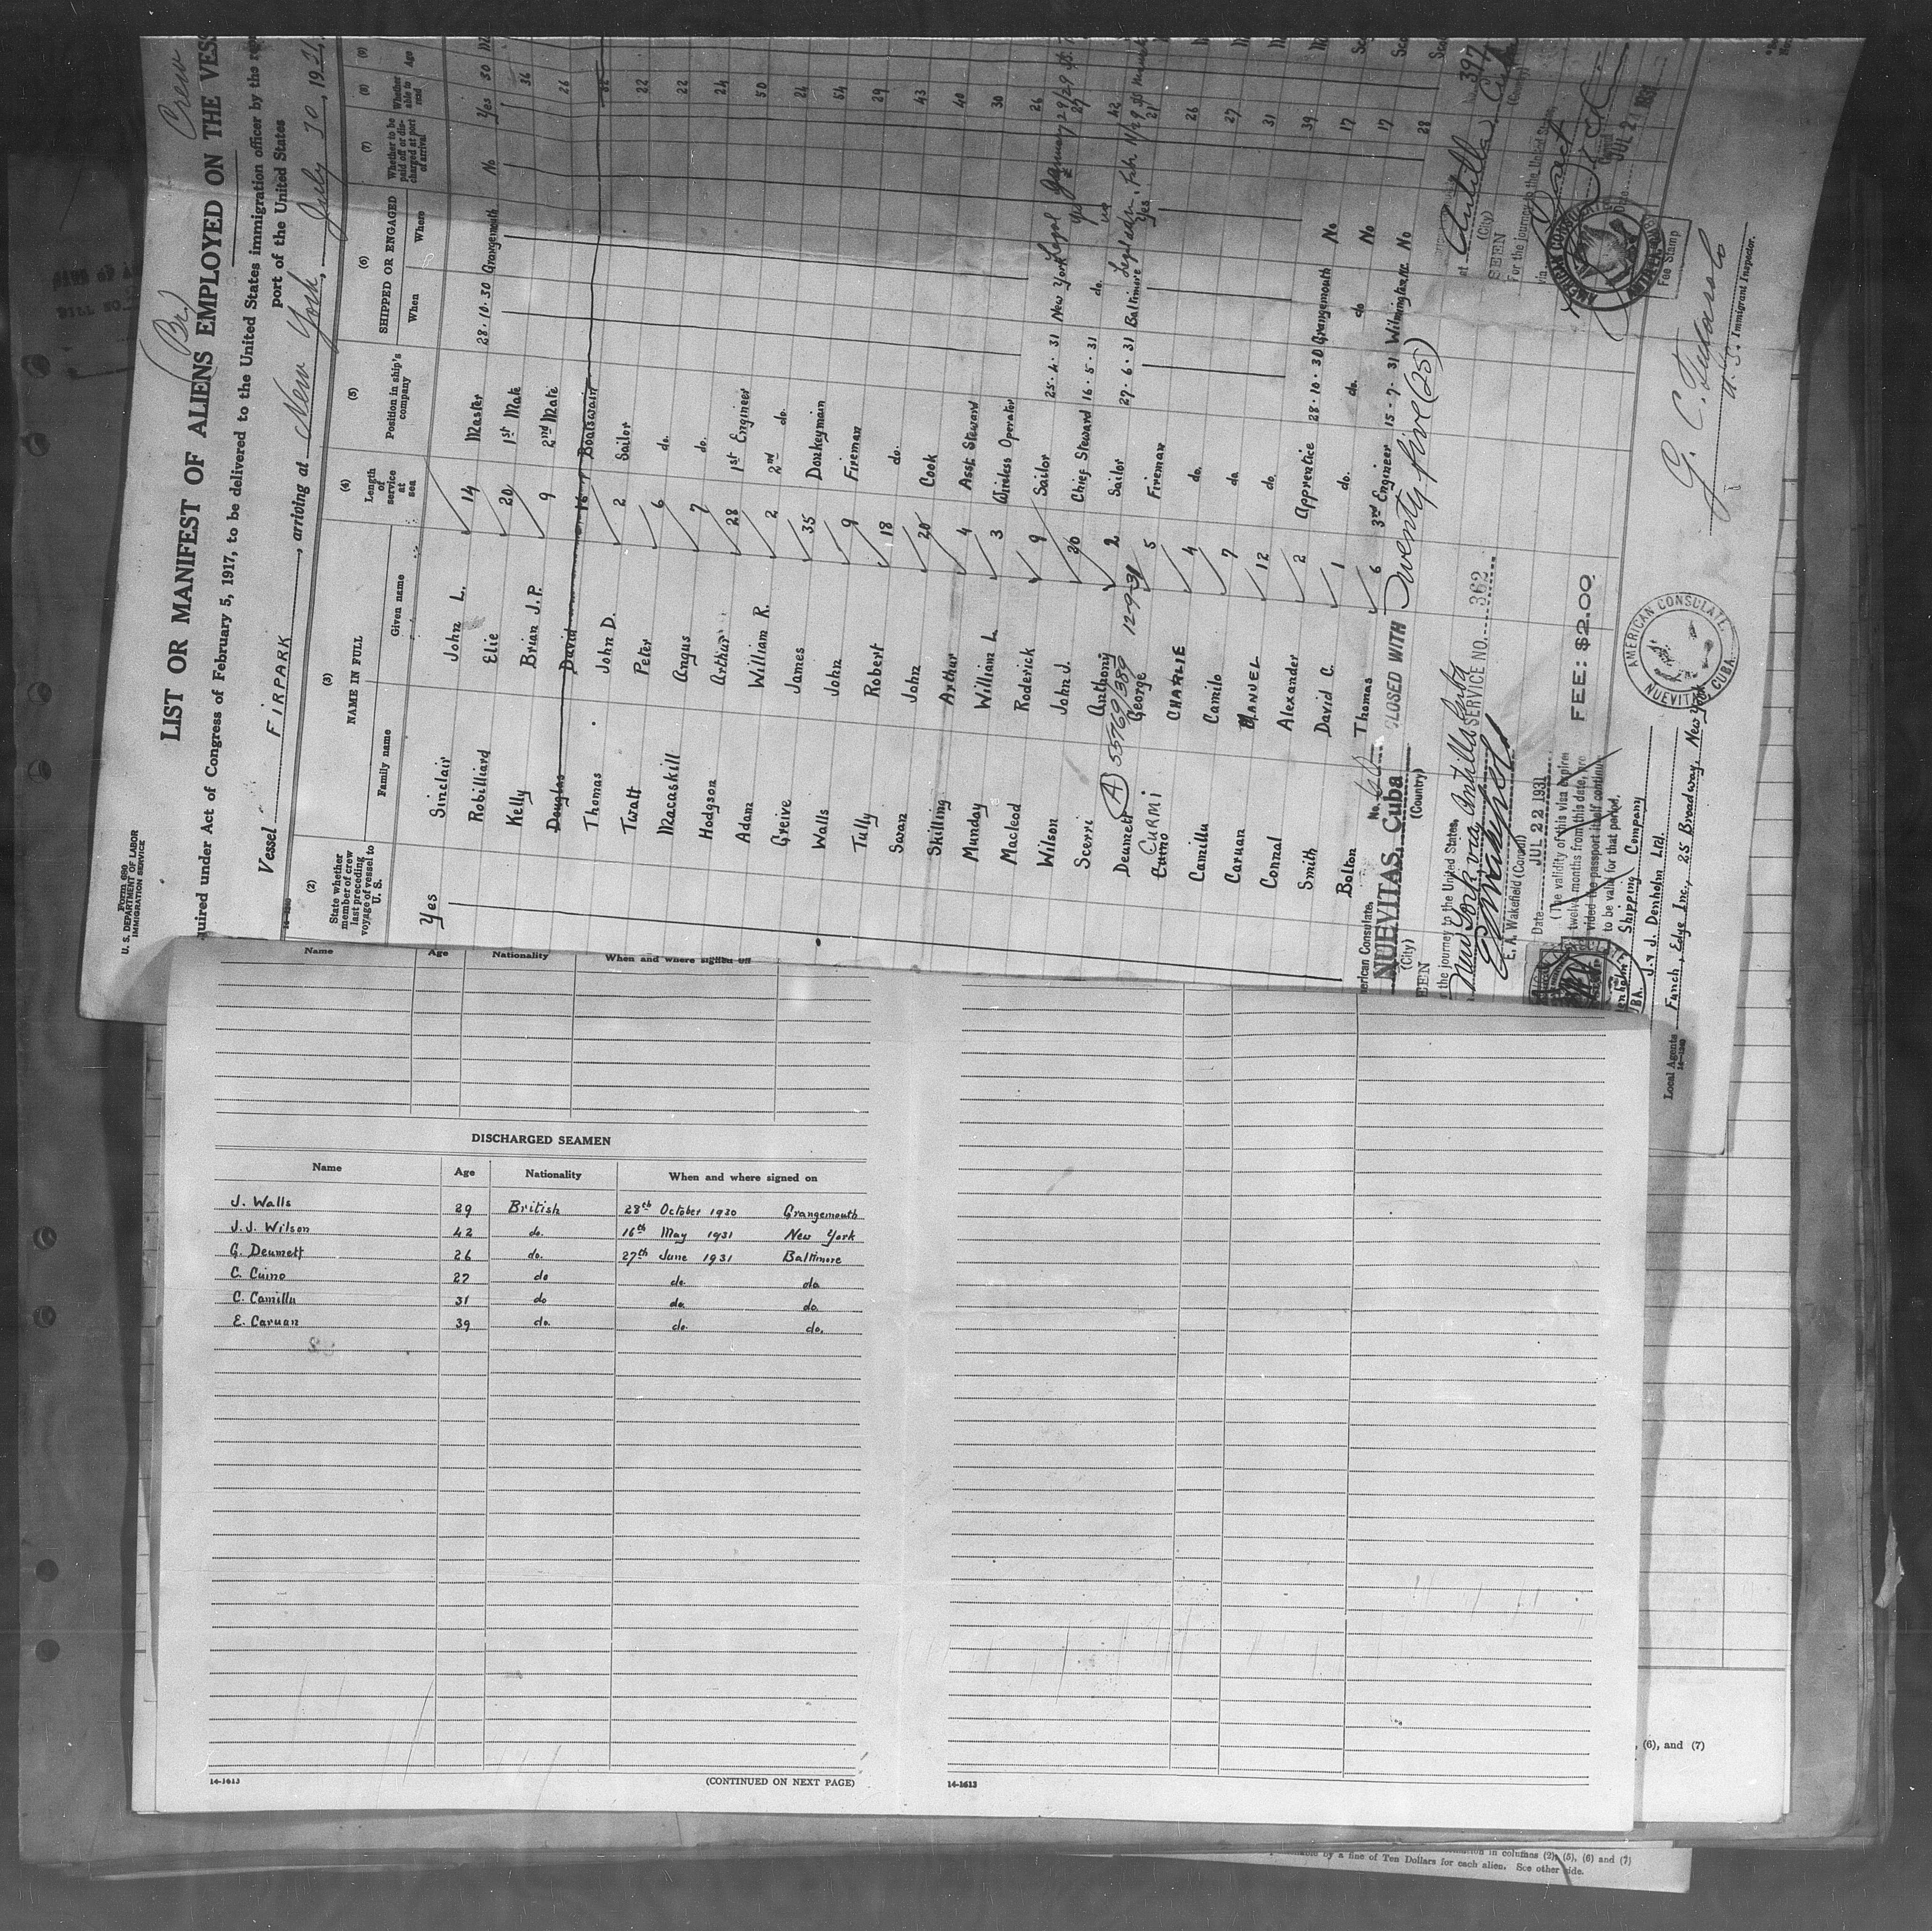 Form 680
U. S. DEPARTMENT OF LABOR
IMMIGRATION SERVICE
(Br) Crew
LIST OR MANIFEST OF ALIENS EMPLOYED ON THE VESS
quired under Act of Congress of February 5, 1917, to be delivered to the United States immigration officer by the
port of the United States
Vessel FIRPARK, arriving at New York, July 30, 1931
(2) (3) (4) (5) (6) (7) (8) (9)
State whether member of crew last preceding voyage of vessel to U. S. NAME IN FULL Family name Given name Length of service at sea Position in ship's company SHIPPED OR ENGAGED When Where Whether to be paid off or discharged at port of arrival Whether able to read Age
Yes Sinclair John L. 14 Master 28.10.30 Grangemouth No Yes 30
Robilliard Elie 20 1st Mate 36
Kelly Brian J.P. 9 2nd Mate 26
Douglas David 16 Boatswain
Thomas John D. 2 Sailor 22
Twatt Peter 6 do. 22
Macaskill Angus 7 do. 24
Hodgson Arthur 28 1st Engineer 50
Adam William R. 2 2nd do. 24
Greive James 35 Donkeyman 54
Walls John 9 Fireman 29
Tully Robert 18 do. 43
Swan John 20 Cook 40
Skilling Arthur 4 Asst Steward 30
Munday William L. 3 Wireless Operator 26
Macleod Roderick 9 Sailor 25.4.31 New York Legal 27
Wilson John J. 20 Chief Steward 16.5.31 do. 42
Scerri Anthony 2 Sailor 27.6.31 Baltimore Yes 21
Deumett George 5 Fireman 26
(A) 55769/389 12-9-31
Cuino CURMI CHARLIE 4 do. 27
Camillu Camilo 7 do 31
Caruan MANUEL 12 do. 39
Connal Alexander 2 Apprentice 28.10.30 Grangemouth No 17
Smith David C. 1 do. do. do No 17
Bolton Thomas 6 3rd Engineer 15-7-31 Wilmington No 28
CLOSED WITH Twenty five (25)
American Consulate, No.
NUEVITAS, Cuba
(City) (Country)
SEEN
the journey to the United States,
New York via Antilla Cuba
SERVICE NO. 362
E. A. Wakefield (Consul)
Date JUL 22 1931
(The validity of this visa expires
twelve months from this date, pro
vided the passport itself continue
to be valid for that period.
FEE: $2.00
AMERICAN CONSULATE
NUEVITAS, CUBA.
No. 397
at Antilla, Cuba
(City) (Country)
SEEN
For the journey to the United States,
via Direct
Date JUL 2 1931
Fee Stamp
Shipping Company
J. & J. Denholm Ltd.
Local Agents Funch, Edye Inc., 25 Broadway, New York
14-1240
U. S. Immigrant Inspector.
Name Age Nationality When and where signed off
DISCHARGED SEAMEN
Name Age Nationality When and where signed on
J. Walls 29 British 28th October 1930 Grangemouth
J. J. Wilson 42 do. 16th May 1931 New York
G. Deumett 26 do. 27th June 1931 Baltimore
C. Cuino 27 do do. do
C. Camillu 31 do do. do.
E. Caruan 39 do. do. do.
14-1613 (CONTINUED ON NEXT PAGE)
14-1613
, (6), and (7)
in columns (2), (5), (6) and (7)
by a fine of Ten Dollars for each alien. See other side.